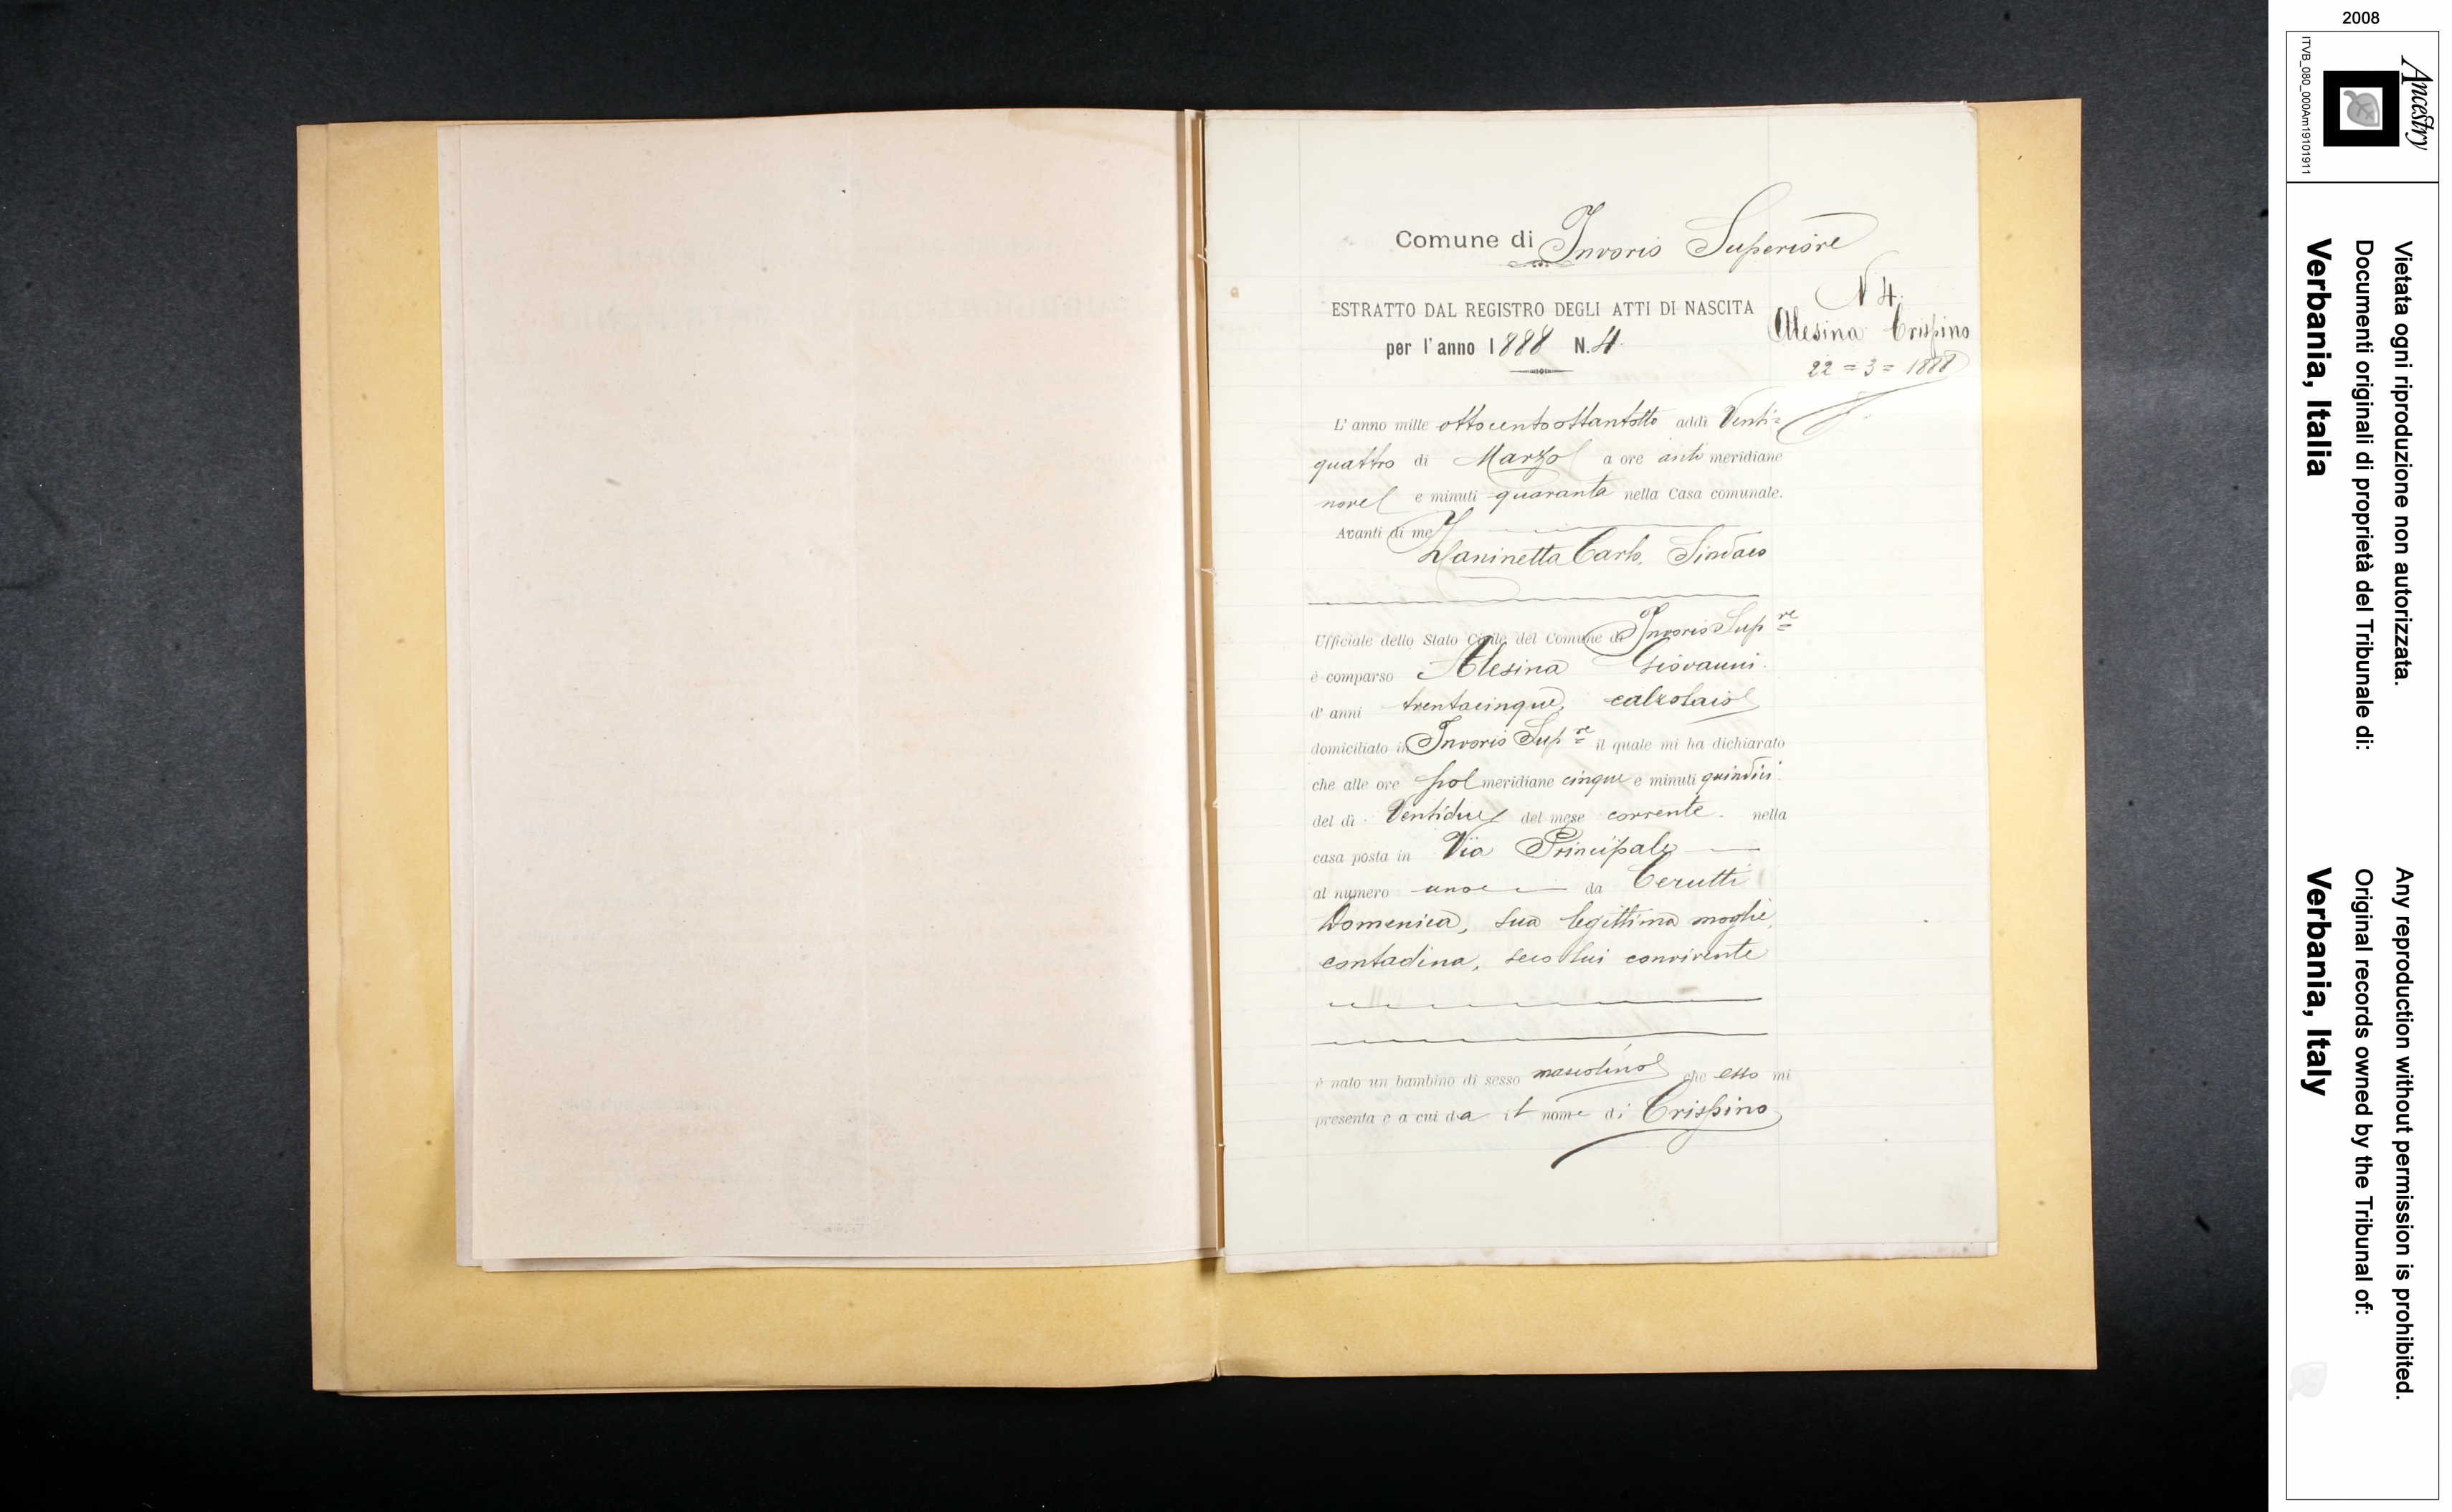 Comune di Invorio Superiore
ESTRATTO DAL REGISTRO DEGLI ATTI DI NASCITA
per l'anno 1888 N. 4
N 4.
Alesina Crispino
22 = 3 = 1888
L'anno mille ottocentoottantotto addì Venti=
quattro di Marzo a ore anti meridiane
nove e minuti quaranta nella Casa comunale.
Avanti di me
Zaninetta Carlo, Sindaco
Ufficiale dello Stato Civile del Comune di Invorio Sup.re
è comparso Alesina Giovanni
d'anni trentacinque, calzolaio
domiciliato in Invorio Sup.re il quale mi ha dichiarato
che alle ore po meridiane cinque e minuti quindici
del dì Ventidue del mese corrente. nella
casa posta in Via Principale
al numero uno da Cerutti
Domenica, sua legittima moglie,
contadina, seco lui convivente
è nato un bambino di sesso mascolino che esso mi
presenta e a cui da il nome di Crispino
2008
Ancestry
ITVB_080_000Am19101911
Vietata ogni riproduzione non autorizzata.
Documenti originali di proprietà del Tribunale di:
Verbania, Italia
Any reproduction without permission is prohibited.
Original records owned by the Tribunal of:
Verbania, Italy